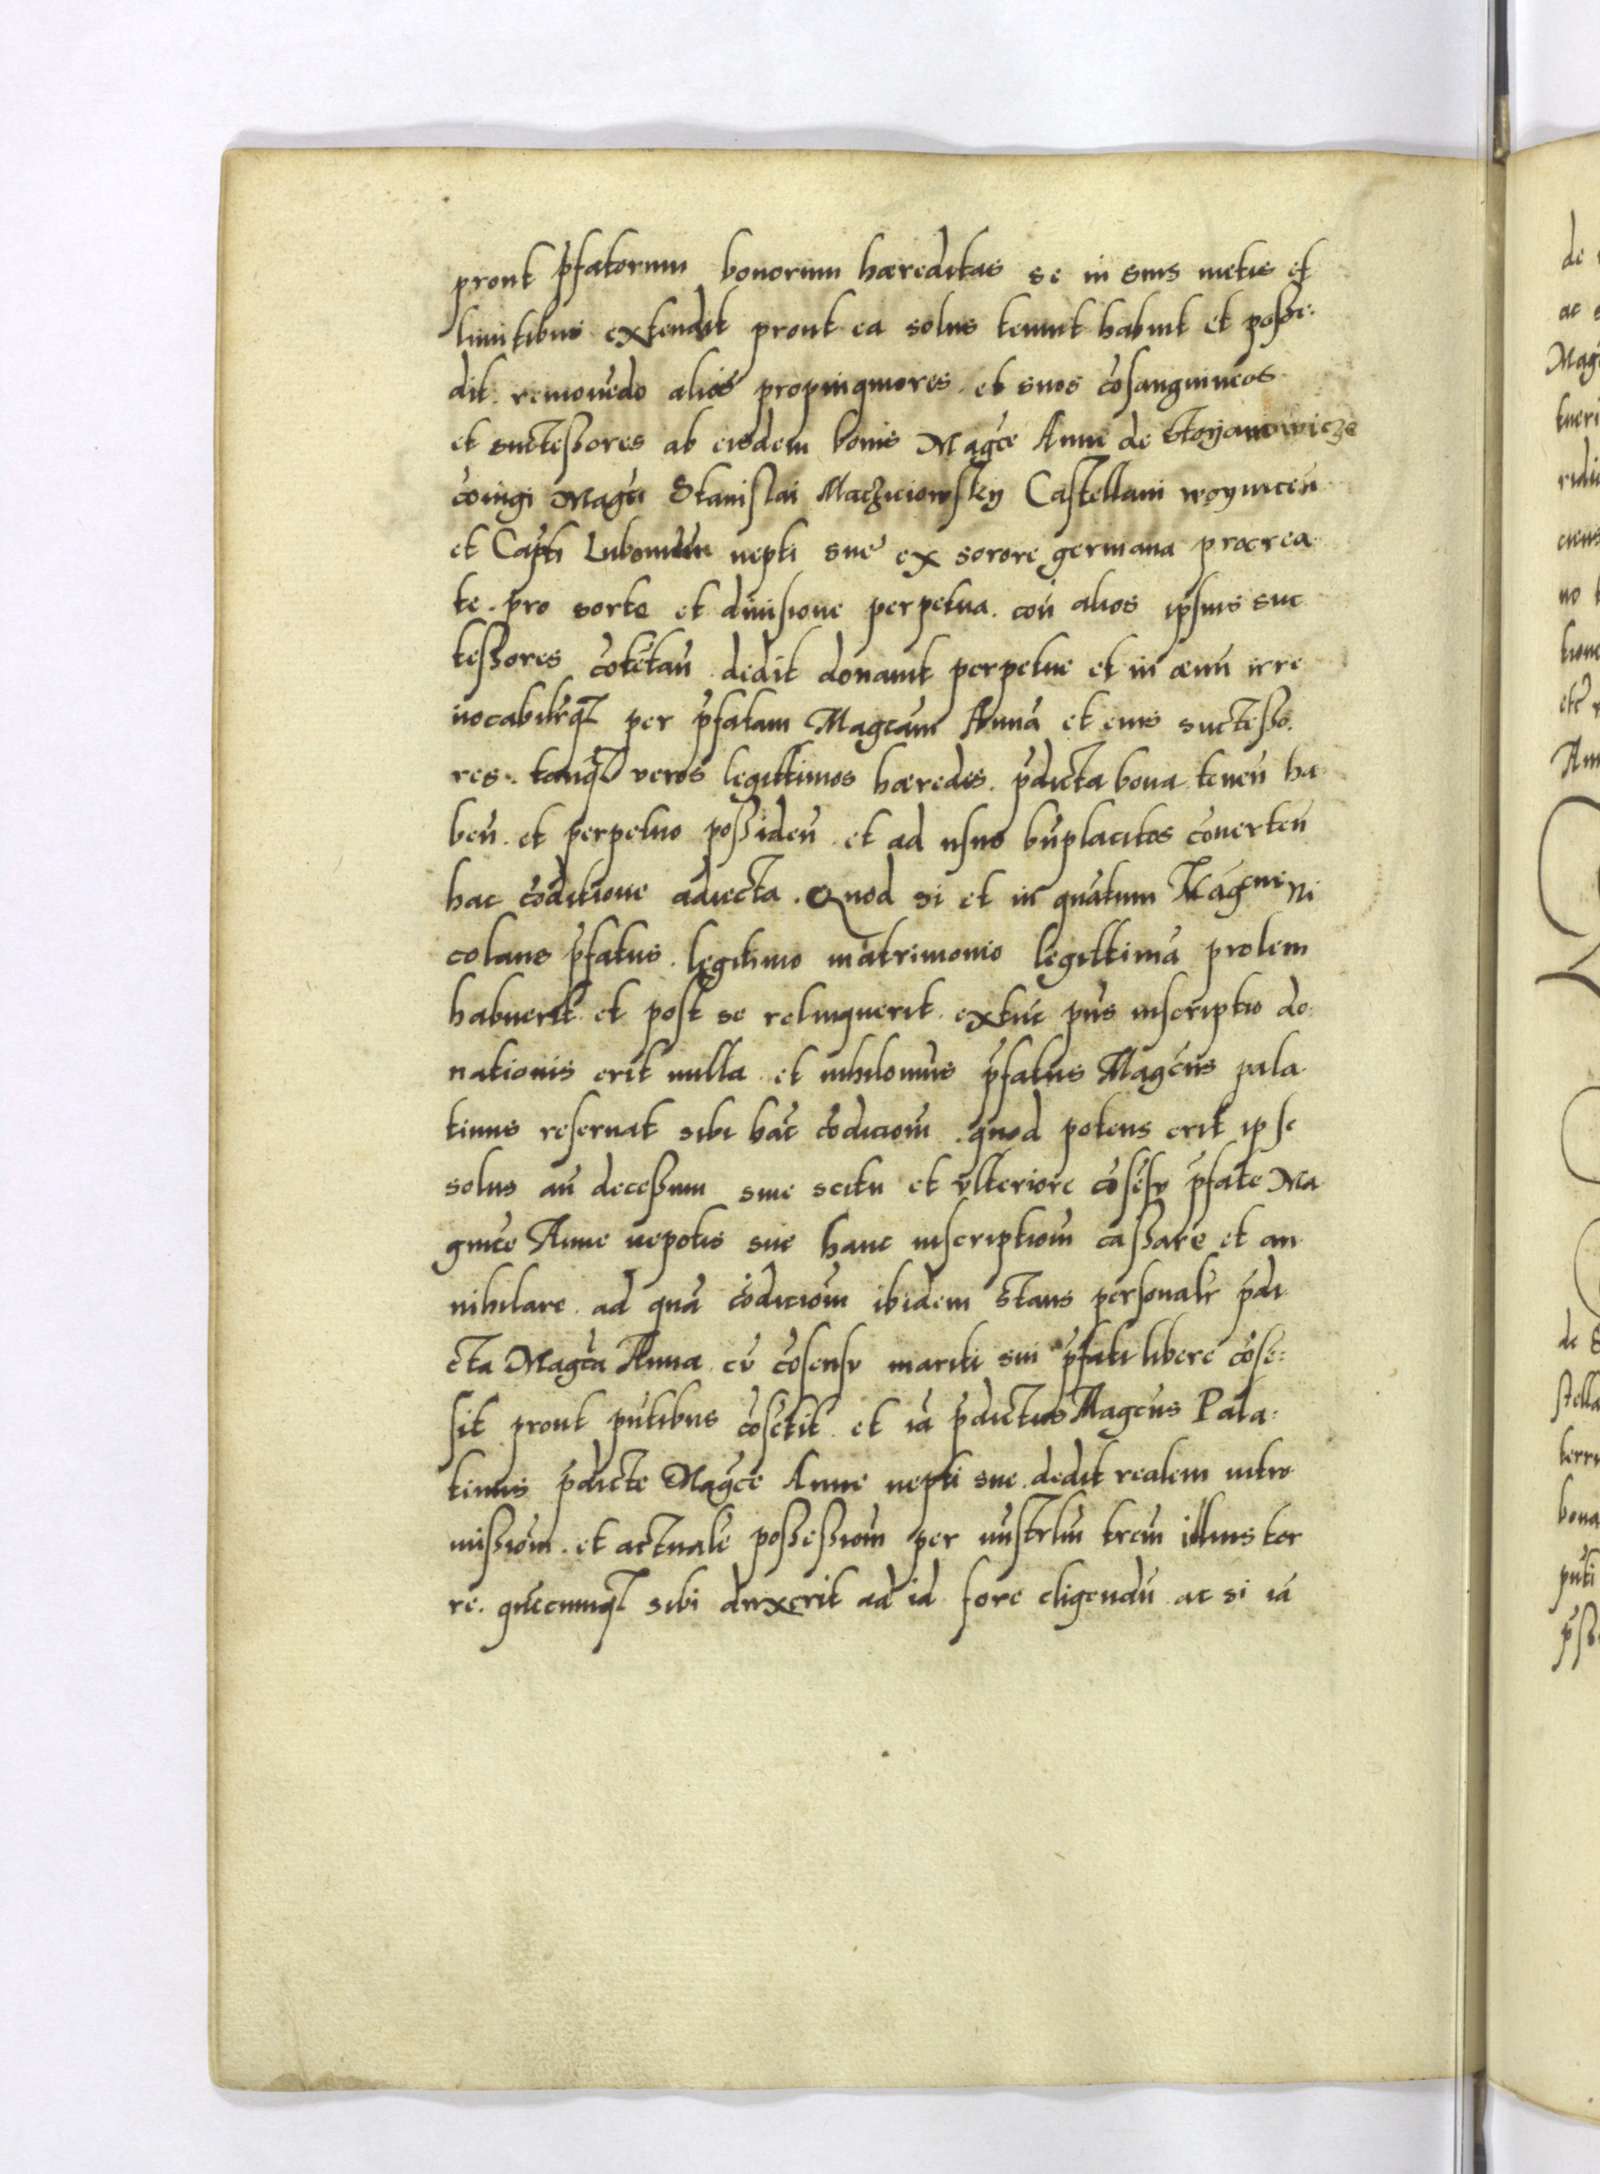 prout p̄fatorum bonorum hæreditas se in suis metis et
limitibus extendit prout ea solus tenuit habuit et posse:
dit. remouēdo alios propinquiores et suos cōsanguineos
et suctessores ab eisdem bonis Magc̄e Anne de Stoyanowicze
cōiugi Magc̄i Stanislai Maczieiowsky Castellani woyniceñ
et Capt̄i Lubomleñ nepti sue ex sorore germana procrea
te. pro sorte et diuisione perpetua. coñ alios ipsius suc
tessores cōtētañ dedit donauit perpetue et in æuū irre
uocabilr̄q3 per p̄fatam Magcam̄ Annā et eius suctesso.
res. tanq3 veros legittimos hæredes. p̄dicta bona teneñ ha
beñ. et perpetuo possideñ et ad usus bn̄placitos cōuerteñ
hac cōditione adiecta. Quod si et in quātum Magcus Ni
colaus p̄fatus. legitimo matrimonio legittimā prolem
habuerit et post se relinquerit extūc pn̄s inscriptio do.
nationis erit nulla et nihilominus p̄fatus Magcus pala
tinus reseruat sibi hāc cōdiciom̄. quod potens erit ipse
solus añ decessum sine scitu et vlteriore cōsēsv p̄fate Ma
gnice Anne nepotis sue hanc inscriptiom̄ cassare et an
nihilare. ad quā cōdiciom̄ ibidem stans personalr̄ p̄di
cta Magc̄a Anna. cū cōsensv mariti sui p̄fati libere cōse:
sit prout pn̄tibus cōsētit et iā p̄dictus Magcus Pala:
tinus p̄dicte Magc̄e Anne nepti sue. dedit realem intro
missiom̄. et actualē possessiom̄ per mistrlm̄ trem̄ illius ter
re. quēcumq3 sibi duxerit ad id fore eligendū ac si iā